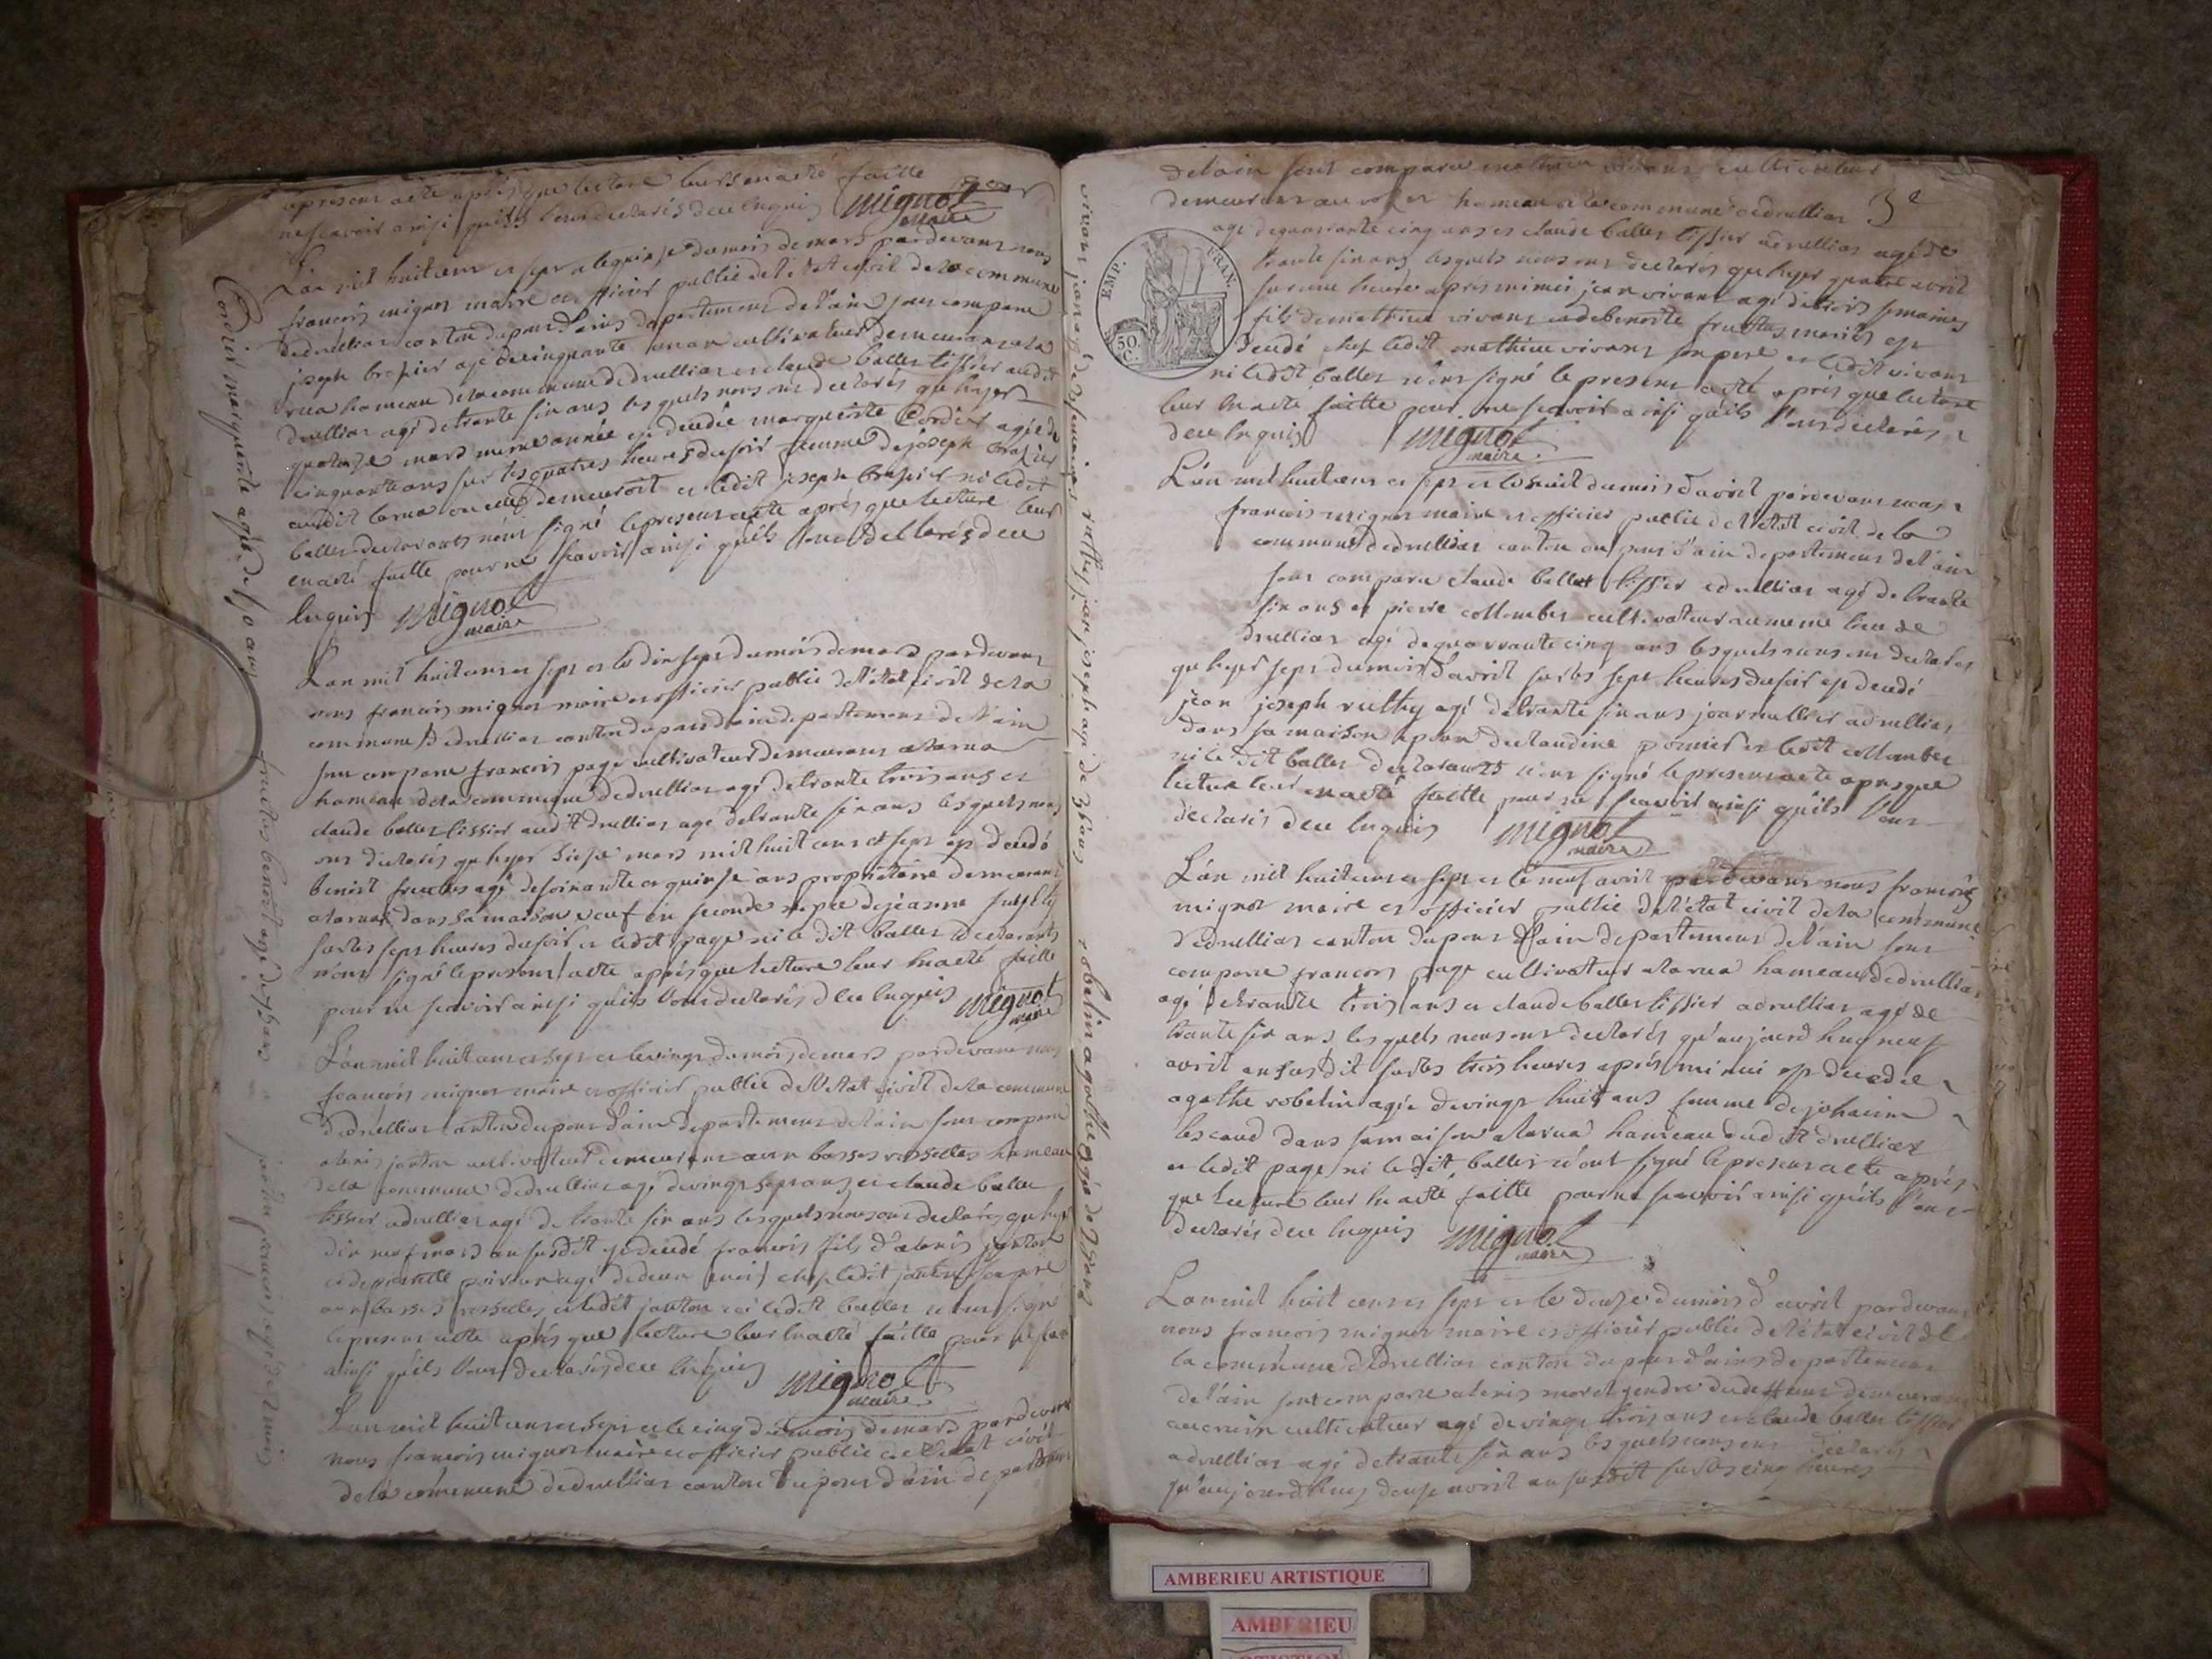 apresent acte après que lecture leurs en a eté faitte
ne scavoir ainsi quils l'ont declarés dece Enquis Mignot
maire
Lán mil huit cens et sept et le quinze du mois de mars pardevant nous
françois mignot maire et officier public de l'état civil de la commune
dedruillias canton du pont d'ains departement de l'ain sont comparu
joseph brosier agé de cinquante un an cultivateur demeurant a la
rua hameau de la commune dedruillias et claude ballet tissier audit
druillias agé de trante six ans les quels nous ont declarés que hyer
quatorze mars meme année est decedée marguerite Cordier agée de
cinquante ans sur les quatres heures du soir femme de joseph brosier
audit larua ou elle demeuroit et ledit joseph brosier ni ledit
ballet declarants n'ont signé le present acte après que lecture leur
en a eté faitte pour ne scavoir ainsi quils l'ont declarés dece
Enquis Mignot
maire
Lan mil huit cens et sept et le dix sept du mois de mars pardevant
nous françois mignot maire et officier public de l'état civil de la
commune dedruillias canton du pont d'ain departement de l'ain
sont comparu françois page cultivateur demeurant a larua
hameau de la commune dedruillias agé de trante trois ans et
claude ballet tissier audit druillias agé de trante six ans les quels nous
ont declarés que hyer seize mars mil huit cens et sept est decedé
benoit fruittes agé de soixante et quinze ans proprietaire demeurant
a larua dans sa maison veuf en seconde nopce de jeanne
sur les sept heures du soir et ledit page ni le dit ballet declarants
n'ont signé le present acte après que lecture leur En a eté faitte
pour ne scavoir ainsi quils l'ont declarés dece Enquis Mignot
maire
Lán mil huit cens et sept et le vingt du mois de mars pardevant nous
françois mignot maire et officier public de l'état civil de la commune
dedruillias canton du pont d'ain departement de l'ain sont comparu
alexis janton cultivateur demeurant aux basses hameau
de la commune dedruillias agé de vingt sept ans et claude ballet
tissier adruillias agé de trante six ans les quels nous ont declarés que hyer
dix neuf mars an susdit est decedé françois fils d'alexis janton
et de agé de deux mois chez ledit janton son pere
aux basses et ledit janton ni ledit ballet n'ont signé
le present acte après que lecture leur En a eté faitte pour ne scav
ainsi quils l'ont declarés dece Enquis Mignot
maire
Lan mil huit cens et sept et le cinq du mois de mars pardevant
nous françois mignot maire et officier public de l'état civil
de la commune dedruillias canton du pont d'ain departement
Cordier marguerite agée de 50 ans
fruittes benoit agé de 75 ans
janton françois agé de 2 mois
vivant jean agé de 3 semaines
jean joseph agé de 36 ans
robelin agathe agée de 28 ans
EMP. FRAN.
50.
C.
de l'ain sont comparu mathieu vivant cultivateur
demeurant au hameau de la commune dedruillias 3e
agé de quarante cinq ans et claude ballet tissier adruillias agé de
trante six ans lesquels nous ont declarés que hyer quatre avril
sur une heure après minuit jean vivant agé de trois semaines
fils de mathieu vivant et de benoite fruittes mariés est
decedé chez ledit mathieu vivant son pere et ledit vivant
ni ledit ballet n'ont signé le present acte après que lecture
leur En a eté faitte pour ne scavoir ainsi quils l'ont declarés
dece Enquis Mignot
maire
Lán mil huit cens et sept et le huit du mois d'avril pardevant nous
françois mignot maire et officier public de l'état civil de la
commune dedruillias canton du pont d'ain departement de l'ain
sont comparu claude ballet tissier adruillias agé de trante
six ans et pierre collombet cultivateur au meme lieu de
druillias agé de quarante cinq ans les quels nous ont declarés
que hyer sept du mois d'avril sur les sept heures du soir est decedé
jean joseph agé de trante six ans journallier adruillias
dans sa maison epoux de claudine et ledit collombet
ni le dit ballet declarants n'ont signé le present acte apres que
lecture leur en a eté faitte pour ne scavoir ainsi quils l'ont
declarés dece Enquis Mignot
maire
Lán mil huit cens et sept et le neuf avril pardevant nous françois
mignot maire et officier public de l'état civil de la commune
dedruillias canton du pont d'ain departement de l'ain sont
comparu françois page cultivateur a larua hameau dedruillias
agé de trante trois ans et claude ballet tissier adruillias agé de
trante six ans les quels nous ont declarés qu'aujourd huy neuf
avril an susdit sur les trois heures après minui est decedée
agathe robelin agée de vingt huit ans femme de
dans sa maison a larua hameau dudit druillias
et ledit page ni le dit ballet n'ont signé le present acte après
que lecture leur En a eté faitte pour ne scavoir ainsi quils l'ont
declarés dece Enquis Mignot
maire
Lan mil huit cens et sept et le douze du mois d'avril pardevant
nous françois mignot maire et officier public de l'état civil de
la commune dedruillias canton du pont d'ains departement
de l'ain sont comparu alexis moret gendre demeurant
cultivateur agé de vingt trois ans et claude ballet tissier
adruillias agé de trante six ans les quels nous ont declarés
qu'aujourd'huy douze avril an susdit sur les cinq heures
AMBERIEU ARTISTIQUE
AMBERIEU
ARTISTIQUE